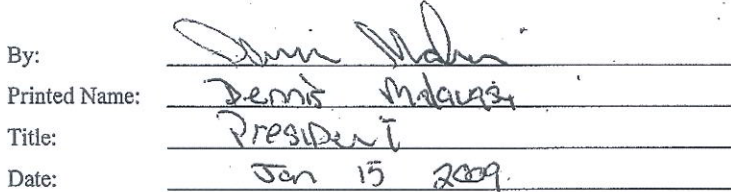 By:
Printed Name: Dennis
Title: President
Date: Jan 15 2009.